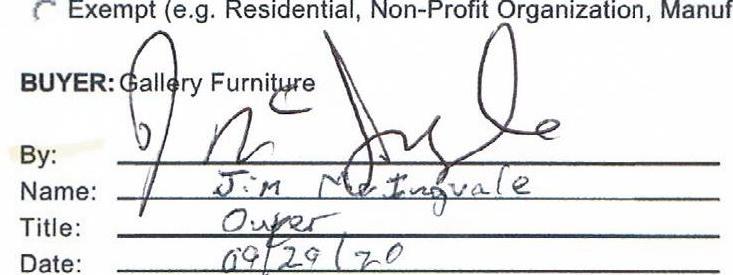 Exempt (e.g. Residential, Non-Profit Organization, Manuf
BUYER: Gallery Furniture
By:
Name: Jim McIngvale
Title: Owner
Date: 09/29/20